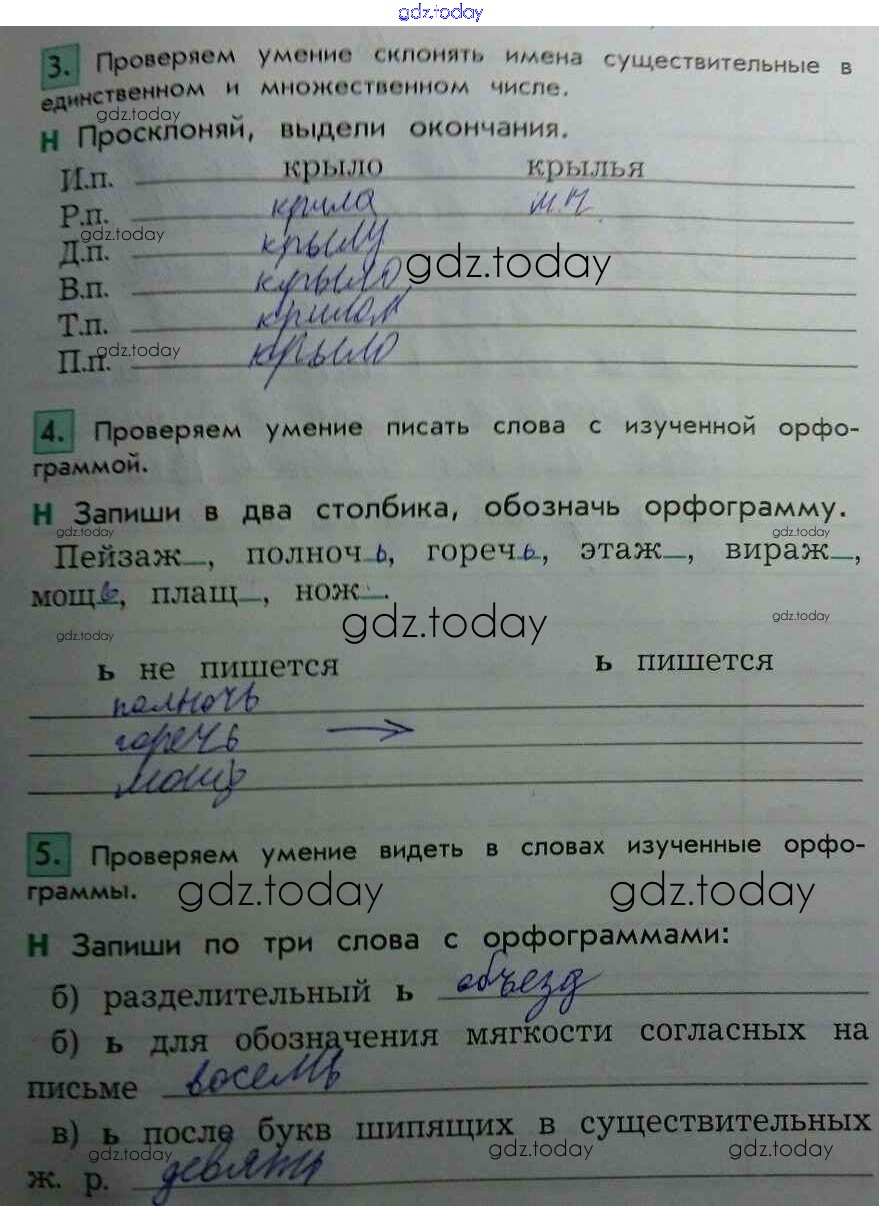 gdz.today
3. Проверяем умение склонять имена существительные в
единственном и множественном числе.
gdz.today
Н Просклоняй, выдели окончания.
И.п. крыло крылья
Р.п. крила м.н.
gdz.today
Д.п. крылу
gdz.today
В.п. крыло
Т.п. крилом
gdz.today
П.п. крыло
4. Проверяем умение писать слова с изученной орфо-
граммой.
Н Запиши в два столбика, обозначь орфограмму.
gdz.today gdz.today
Пейзаж_, полночь, горечь, этаж_, вираж_,
мощь, плащ_, нож_.
gdz.today gdz.today gdz.today
ь не пишется ь пишется
полночь
горечь →
мощь
5. Проверяем умение видеть в словах изученные орфо-
граммы.
gdz.today gdz.today
Н Запиши по три слова с орфограммами:
б) разделительный ь объезд
б) ь для обозначения мягкости согласных на
письме восемь
в) ь после букв шипящих в существительных
gdz.today gdz.today gdz.today
ж. р. девять